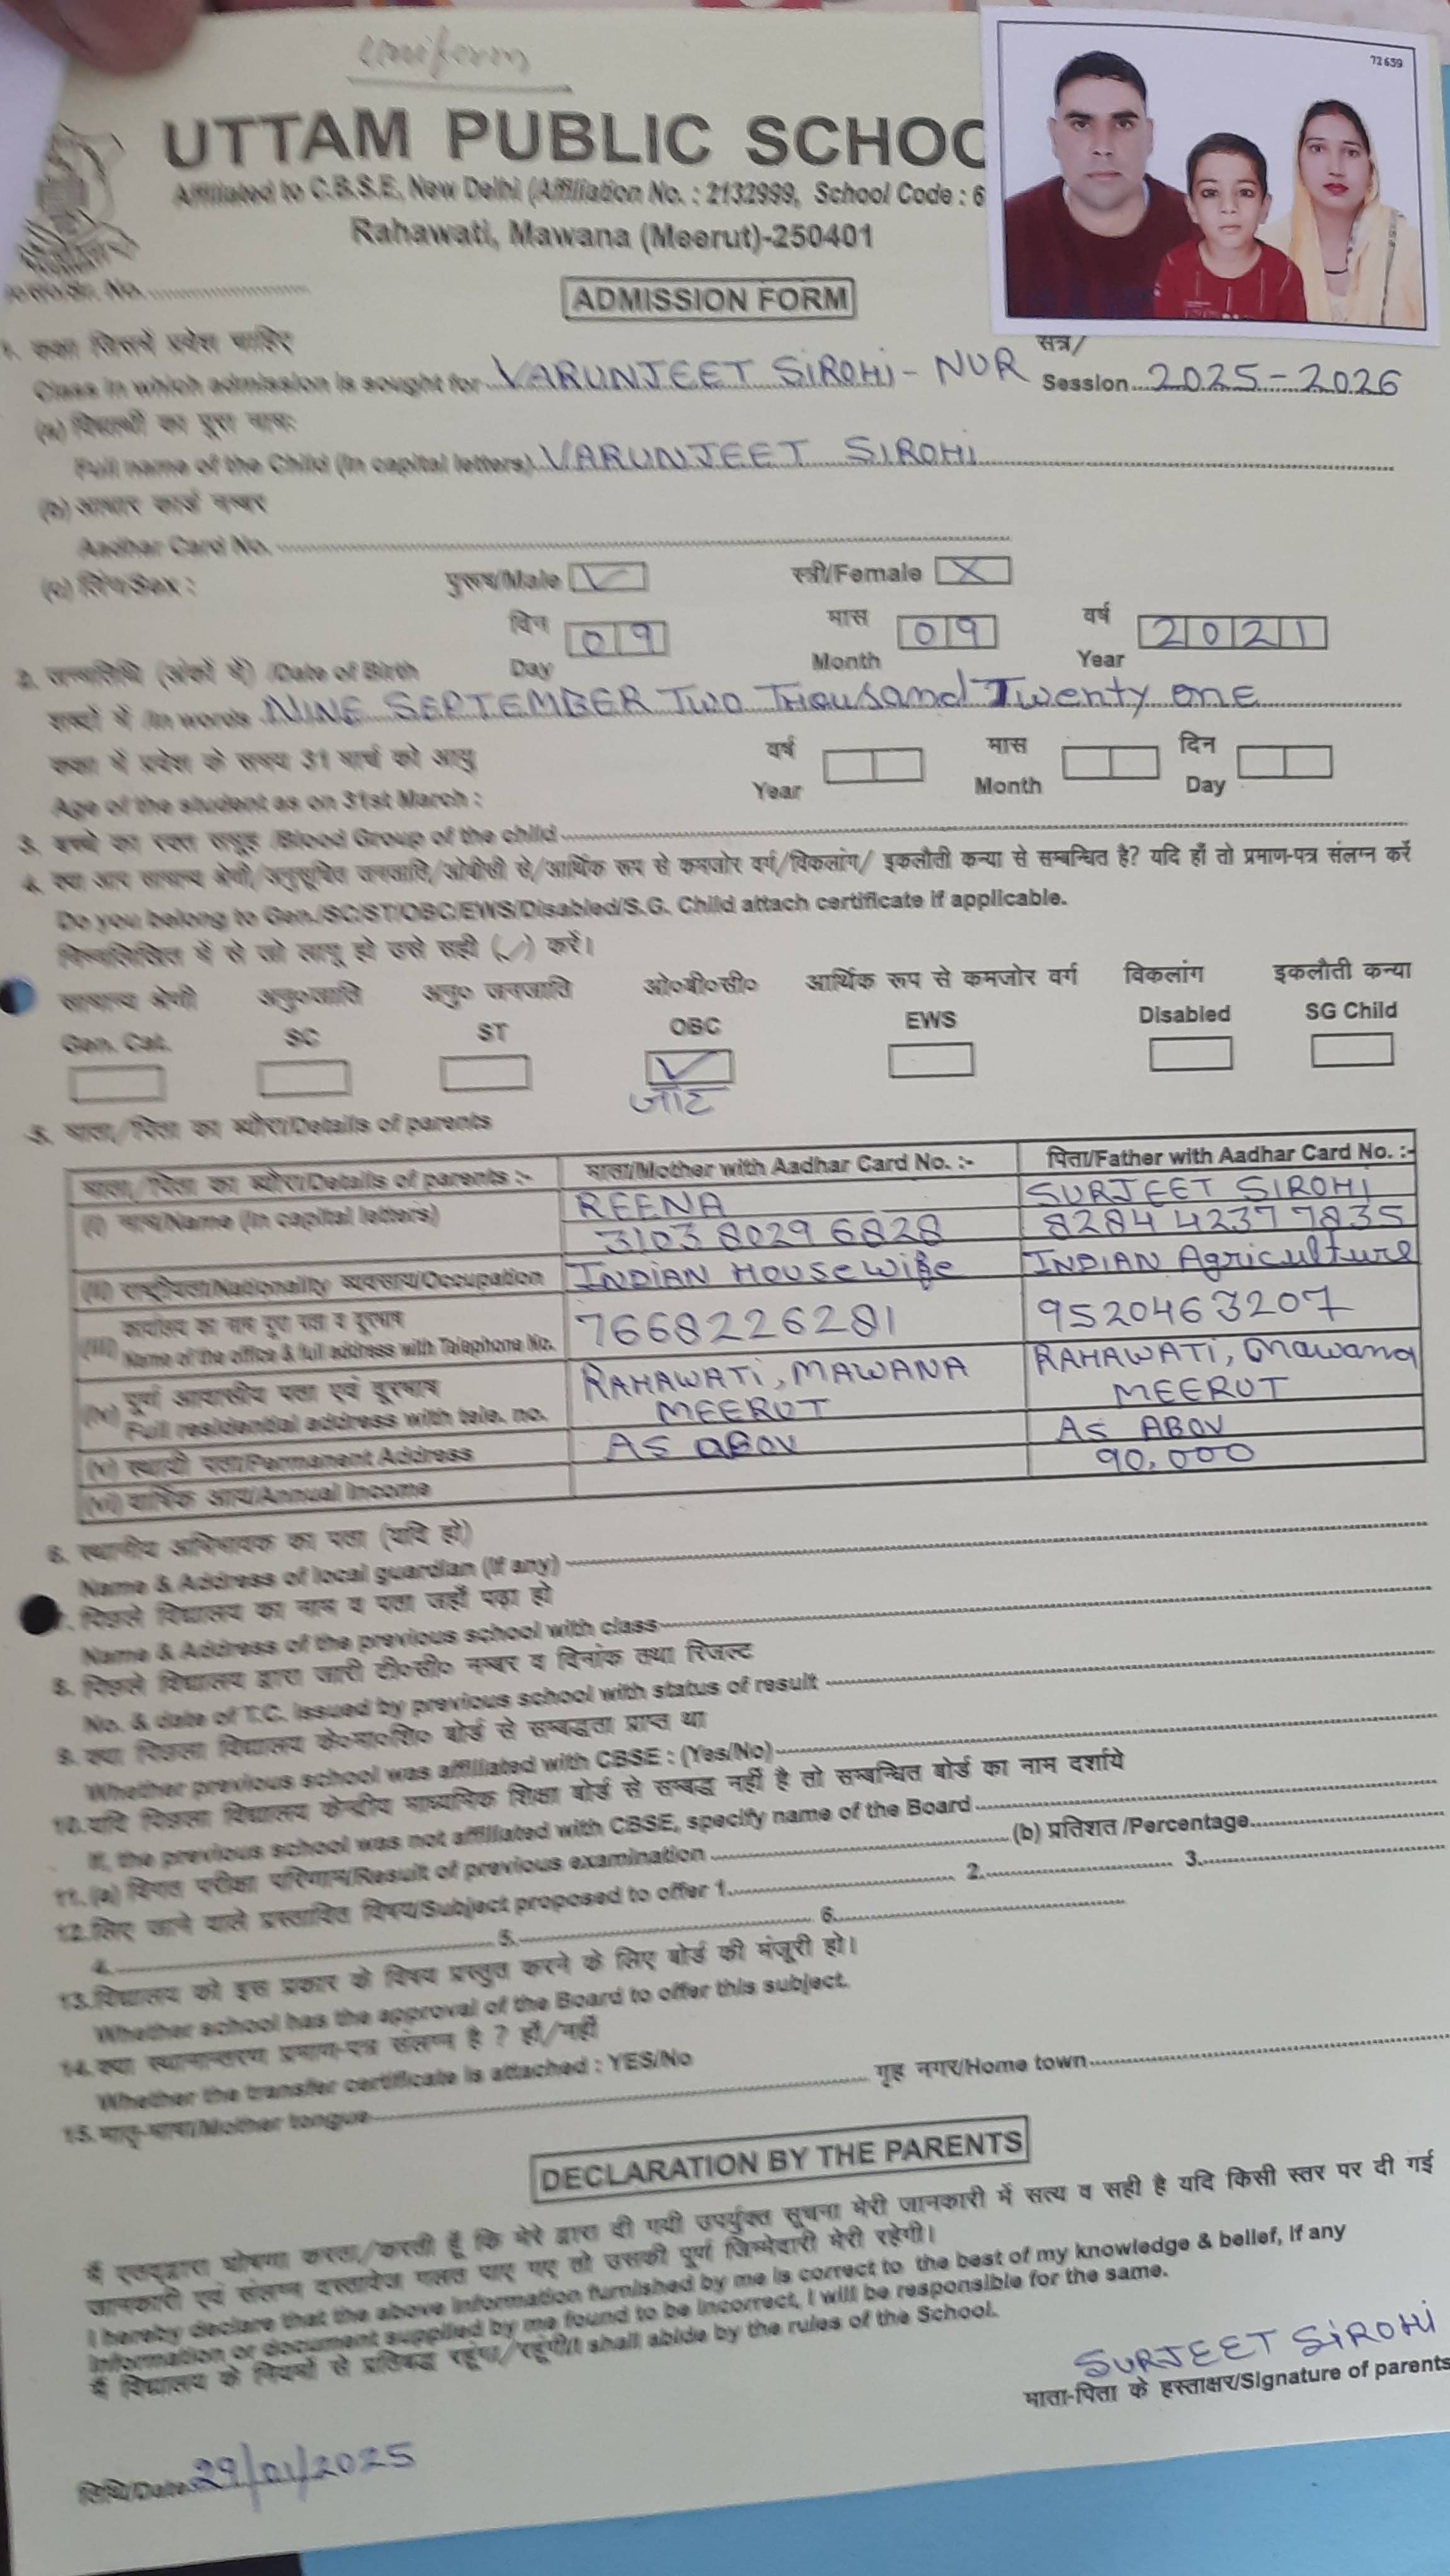 Uniform
72659
UTTAM PUBLIC SCHOO
Affiliated to C.B.S.E, New Delhi (Affiliation No. : 2132999, School Code : 6
Rahawati, Mawana (Meerut)-250401
No.
ADMISSION FORM
1. कक्षा जिसमें प्रवेश चाहिए सत्र/
Class in which admission is sought for VARUNJEET SIROHI - NUR Session 2025-2026
(a) विद्यार्थी का पूरा नाम:
Full name of the Child (In capital letters) VARUNJEET SIROHI
(b) आधार कार्ड नम्बर
Aadhar Card No.
(c) लिंग/Sex : पुरूष/Male ✓ स्त्री/Female X
दिन 09 मास 09 वर्ष 2021
2. जन्मतिथि (अंकों में) /Date of Birth Day Month Year
शब्दों में /In words NINE SEPTEMBER Two Thousand Twenty one
कक्षा में प्रवेश के समय 31 मार्च को आयु वर्ष मास दिन
Age of the student as on 31st March : Year Month Day
3. बच्चे का रक्त समूह /Blood Group of the child
4. क्या आप सामान्य श्रेणी/अनुसूचित जनजाति/ओबीसी से/आर्थिक रूप से कमजोर वर्ग/विकलांग/ इकलौती कन्या से सम्बन्धित है? यदि हाँ तो प्रमाण-पत्र संलग्न करें
Do you belong to Gen./SC/ST/OBC/EWS/Disabled/S.G. Child attach certificate if applicable.
निम्नलिखित में से जो लागू हो उसे सही (✓) करें।
सामान्य श्रेणी अनु०जाति अनु० जनजाति ओ०बी०सी० आर्थिक रूप से कमजोर वर्ग विकलांग इकलौती कन्या
Gen. Cat. SC ST OBC EWS Disabled SG Child
✓
जाट
5. माता/पिता का ब्यौरा/Details of parents
माता/पिता का ब्यौरा/Details of parents :- माता/Mother with Aadhar Card No. :- पिता/Father with Aadhar Card No. :-
(i) नाम/Name (In capital letters) REENA SURJEET SIROHI
3103 8029 6828 8284 4237 7835
(ii) राष्ट्रीयता/Nationality व्यवसाय/Occupation INDIAN HOUSEwife INDIAN Agriculture
(iii) कार्यालय का नाम पूरा पता व दूरभाष 7668226281 9520463207
Name of the office & full address with Telephone No.
(iv) पूर्ण आवासीय पता एवं दूरभाष RAHAWATI, MAWANA RAHAWATI, Mawana
Full residential address with tele. no. MEERUT MEERUT
(v) स्थायी पता/Permanent Address AS ABOV AS ABOV
(vi) वार्षिक आय/Annual Income 90,000
6. स्थानीय अभिभावक का पता (यदि हो)
Name & Address of local guardian (If any)
7. पिछले विद्यालय का नाम व पता जहाँ पढ़ा हो
Name & Address of the previous school with class
8. पिछले विद्यालय द्वारा जारी टी०सी० नम्बर व दिनांक तथा रिजल्ट
No. & date of T.C. issued by previous school with status of result
9. क्या पिछला विद्यालय के०मा०शि० बोर्ड से सम्बद्धता प्राप्त था
Whether previous school was affiliated with CBSE : (Yes/No)
10. यदि पिछला विद्यालय केन्द्रीय माध्यमिक शिक्षा बोर्ड से सम्बद्ध नहीं है तो सम्बन्धित बोर्ड का नाम दर्शाये
If, the previous school was not affiliated with CBSE, specify name of the Board
11. (a) विगत परीक्षा परिणाम/Result of previous examination (b) प्रतिशत /Percentage
12. लिए जाने वाले प्रस्तावित विषय/Subject proposed to offer 1. 2. 3.
4. 5. 6.
13. विद्यालय को इस प्रकार के विषय प्रस्तुत करने के लिए बोर्ड की मंजूरी हो।
Whether school has the approval of the Board to offer this subject.
14. क्या स्थानान्तरण प्रमाण-पत्र संलग्न है ? हाँ/नहीं
Whether the transfer certificate is attached : YES/No
15. मातृ-भाषा/Mother tongue गृह नगर/Home town
DECLARATION BY THE PARENTS
मैं एतद्द्वारा घोषणा करता/करती हूँ कि मेरे द्वारा दी गयी उपर्युक्त सूचना मेरी जानकारी में सत्य व सही है यदि किसी स्तर पर दी गई
जानकारी एवं संलग्न दस्तावेज गलत पाए गए तो उसकी पूर्ण जिम्मेदारी मेरी रहेगी।
I hereby declare that the above information furnished by me is correct to the best of my knowledge & belief, if any
information or document supplied by me found to be incorrect, I will be responsible for the same.
मैं विद्यालय के नियमों से प्रतिबद्ध रहूंगा/रहूंगी/I shall abide by the rules of the School.
SURJEET SIROHI
माता-पिता के हस्ताक्षर/Signature of parents
तिथि/Date 29/01/2025